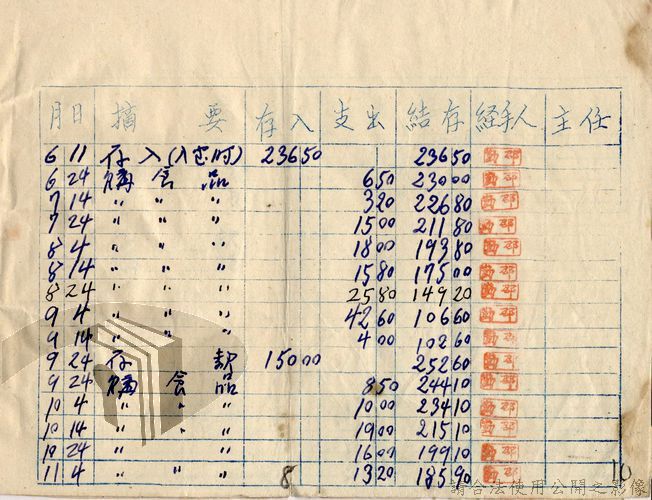 月 日 摘 要 存入 支出 結存 経手人 主任
6 11 存入 23650 23650
6 24 購食品 650 23000
7 14 〃 〃 〃 320 22680
7 24 〃 〃 〃 1500 21180
8 4 〃 〃 〃 1800 19380
8 14 〃 〃 〃 1580 17500
8 24 〃 〃 〃 2580 14920
9 4 〃 〃 〃 4260 10660
9 14 〃 〃 〃 400 10260
9 24 存 款 15000 25260
9 24 購食品 850 24410
10 4 〃 〃 〃 1000 23410
10 14 〃 〃 〃 1900 21510
10 24 〃 〃 1600 19910
11 4 〃 〃 〃 1320 18590
8
10
請合法使用公開之影像